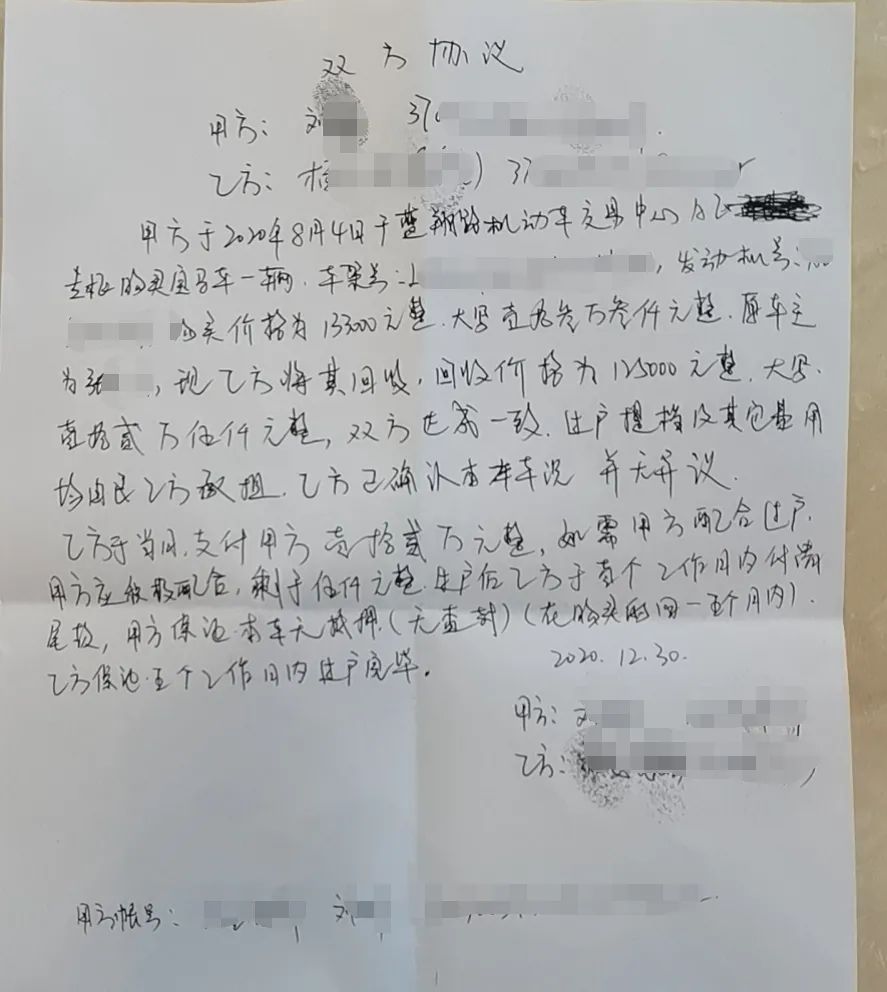 双方协议
甲方：刘 37
乙方： 37
甲方于2020年8月4日于蓝翔路机动车交易中心从乙
购买宝马车一辆.车架号：L ，发动机号：
购买价格为133000元整.大写壹拾叁万叁仟元整.原车主
为张 ，现乙方将其回收，回收价格为125000元整.大写.
壹拾贰万伍仟元整，双方达成一致.过户提档及其它费用
均由乙方承担.乙方已确认本车车况 并无异议.
乙方于当日.支付甲方壹拾贰万元整，如需甲方配合过户.
甲方应积极配合，剩于伍仟元整.过户后乙方于 个工作日内付清
尾款，甲方保证.本车无抵押.（无查封）（在购买的 五个月内）.
乙方保证.五个工作日内过户完毕.
2020.12.30.
甲方：刘
乙方：
甲方帐号： 刘